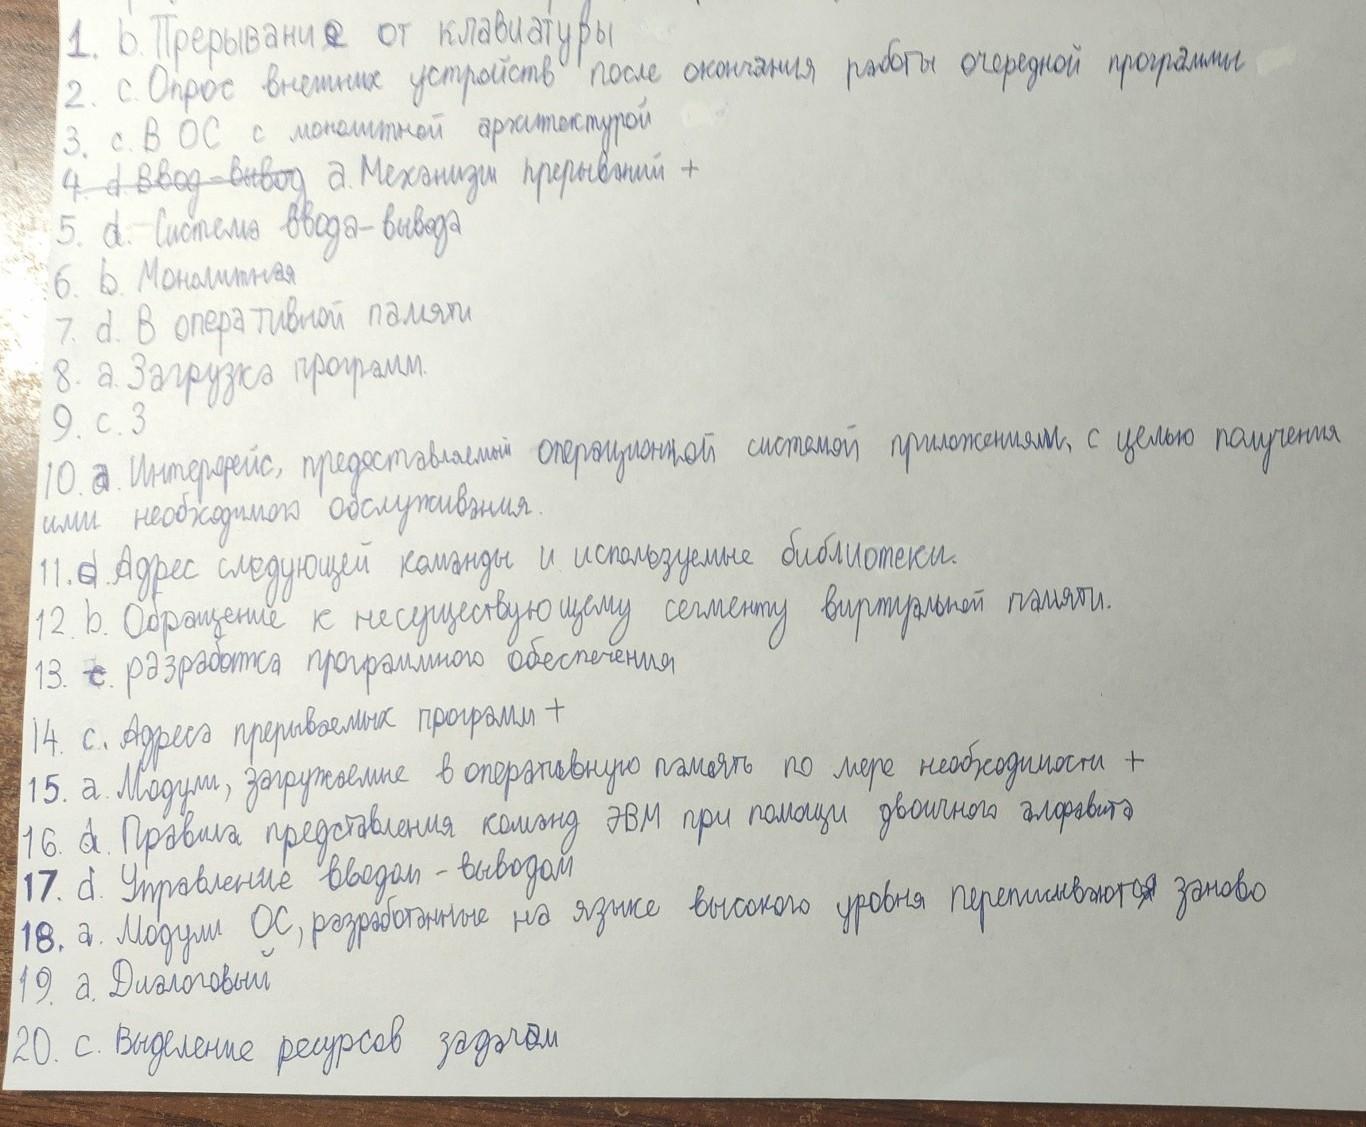 1. b. Прерывание от клавиатуры
2. c. Опрос внешних устройств после окончания работы очередной программы
3. c. В ОС с монолитной архитектурой
4. d. Ввод-вывод a. Механизм прерываний +
5. d. Система ввода-вывода
6. b. Монолитная
7. d. В оперативной памяти
8. a. Загрузка программ.
9. c. 3
10. a. Интерфейс, предоставляемый операционной системой приложениям, с целью получения
ими необходимого обслуживания.
11. d. Адрес следующей команды и используемые библиотеки.
12. b. Обращение к несуществующему сегменту виртуальной памяти.
13. c. разработка программного обеспечения
14. c. Адреса прерываемых программ +
15. a. Модули, загружаемые в оперативную память по мере необходимости +
16. d. Правила представления команд ЭВМ при помощи двоичного алфавита
17. d. Управление вводом-выводом
18. a. Модули ОС, разработанные на языке высокого уровня переписываются заново
19. a. Диалоговый
20. c. Выделение ресурсов задачам